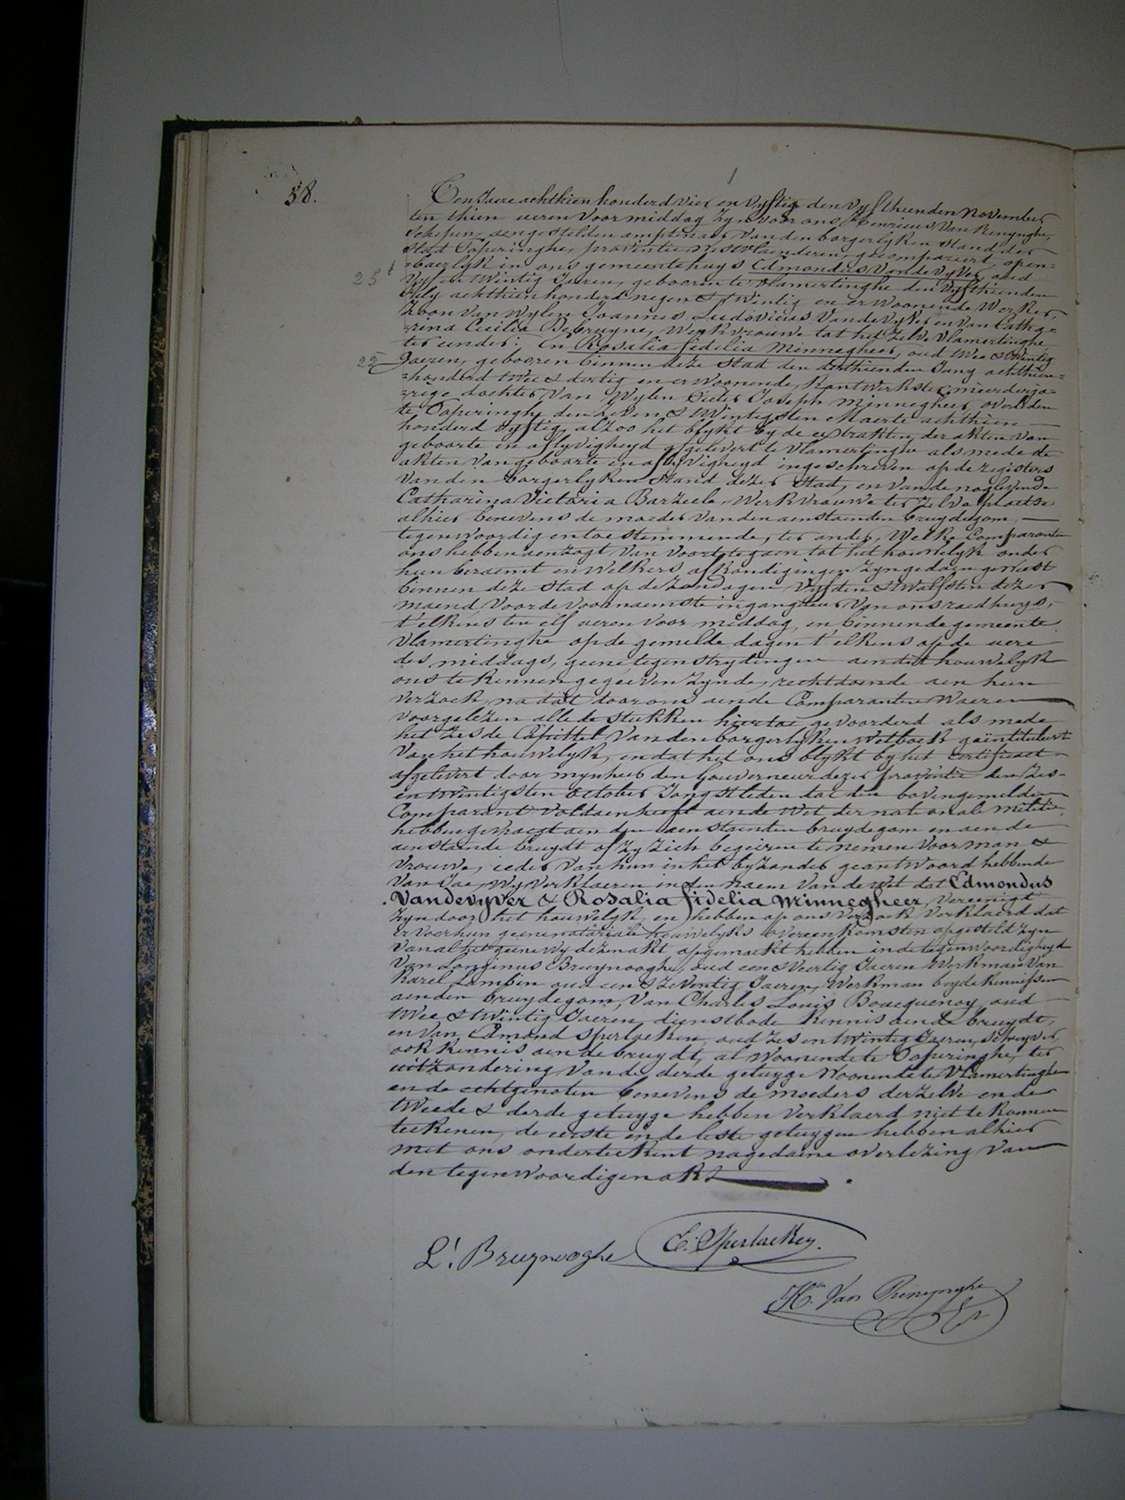 58.
Ten Jaere achthien honderd vier en vyftig den vyfthienden November
ten thien ueren voor middag zyn voor ons Henricus Van Renynghe,
Schepen, aengestelden amptenaer van den borgerlyken stand der
Stad Poperinghe, provintie Westvlaenderen, gecompareert open-
baerlyk in ons gemeentehuys Edmondus Vande Vyver, oud
25
vyf en twintig Jaeren, geboren te Vlamertinghe den vyfthienden
July achthien honderd negen & twintig en er woonende Werkman,
zoon van wylen Joannes Ludovicus Vande Vyver en van Catha-
rina Cecilia Debruyne, Werkvrouwe tot het zelve Vlamertinghe,
ter eender; En Rosalia fidelia Minnegheer, oud twee & twintig
22
Jaeren, geboren binnen deze Stad den derthienden Juny achthien-
honderd twee & dertig en er woonende, Kantwerkster, meerderja-
rige dochter van Wylen Pieter Joseph Minnegheer, overleden
te Poperinghe den acht en & twintigsten Maerte achthien
honderd vyftig, alzoo het blykt by de extrakten der akten van
geboorte en aflyvigheyd geleverd te Vlamertinghe als mede de
akten van geboorte en aflyvigheyd ingeschreven op de registers
van den borgerlyken Stand dezer Stad, en van de noglevende
Catharina Victoria Barzeele, Werkvrouwe ter zelve plaetse
alhier benevens de moeder van den aenstaenden bruydegom
tegenwoordig en toestemmende, ter ander, Welke Comparanten
ons hebben aenzogt van voorts te gaen tot het houwelyk onder
hun beraemt en welkers afkondigingen zyn gedaen geweest
binnen deze Stad op de zondagen vyfden & twalfsten dezer
maend, voor de voornaemste ingangdeur van ons raedhuys,
t'elkens ten elf ueren voor middag, en binnen de gemeente
Vlamertinghe op de gemelde dagen t'elkens op de uere
des middags, geene tegenstrydingen aen dit houwelyk
ons te kennen gegeven zynde, rechtdoende aen hun
verzoek, na dat door ons aen de Comparanten waeren
voorgelezen alle de stukken hiertoe gevoorderd als mede
het zesde Capittel van den borgerlyken wetboek geïntituleert
van het houwelyk, en dat het ons blykt by het certificaet
afgelevert door mynheer den Gouverneur dezer provintie den zes-
en twintigsten October Jongstleden dat den bovengemelden
Comparant voldaen heeft aen de wet der nationale militie
hebben gevraegt aen den aenstaenden bruydegom en aen de
aenstaende bruydt of zy zich begeiren te nemen voor man &
vrouwe, ieder van hun in het byzonder geantwoord hebbende
van Jae, Wy verklaeren in den naem van de wet dat Edmondus
Vandevyver & Rosalia fidelia Minnegheer, vereenigt
zyn door het houwelyk, en hebben op ons verzoek verklaerd dat
er voor hun geene notariale houwelyks overeenkomsten opgesteld zyn
van al het geene wy deze akt opgemaekt hebben in de tegenwoordigheyd
van Longinus Bruynooghe, oud een & veertig Jaeren Werkman van
Karel Lampin oud een & zeventig Jaeren, Werkman beyde kennissen
aen den bruydegom, van Charles Louis Boucquenoy oud
twee & twintig Jaeren, dienstbode kennis aen de bruydt,
en van Edmond Sperlaeken, oud zes en twintig Jaeren, Schryver
ook kennis aen de bruydt, al woonende te Poperinghe, ter
uitzondering van de derde getuyge woonende te Vlamertinghe
en de echtgenoten benevens de moeders derzelve en de
tweede & derde getuyge hebben verklaerd niet te konnen
teekenen, de eerste en de leste getuygen hebben alhier
met ons onderteekent na gedaene overlezing van
den tegenwoordigen akt.
L! Bruynooghe E. Sperlaeken.
Hri Van Renynghe